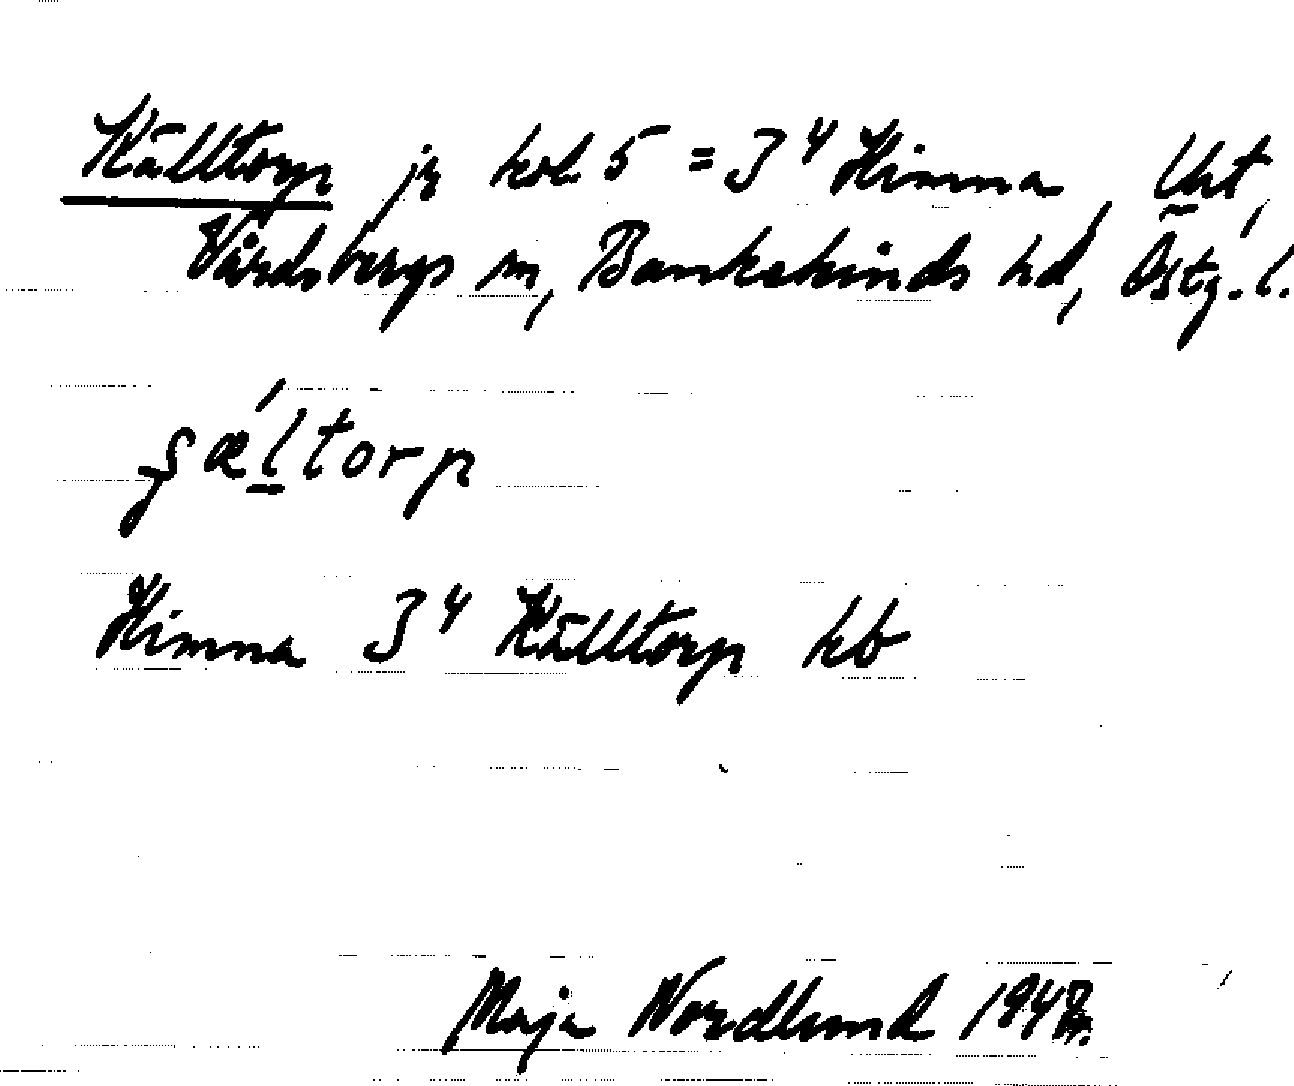 Källtorp jr kol 5 = 3⁴ Himna, Ukt,
Vårdsbergs sn, Bankekinds hd, Östg. l.
ʂǽl̲torp
Himna 3⁴ Källtorp kb
Maja Nordlund 1948.